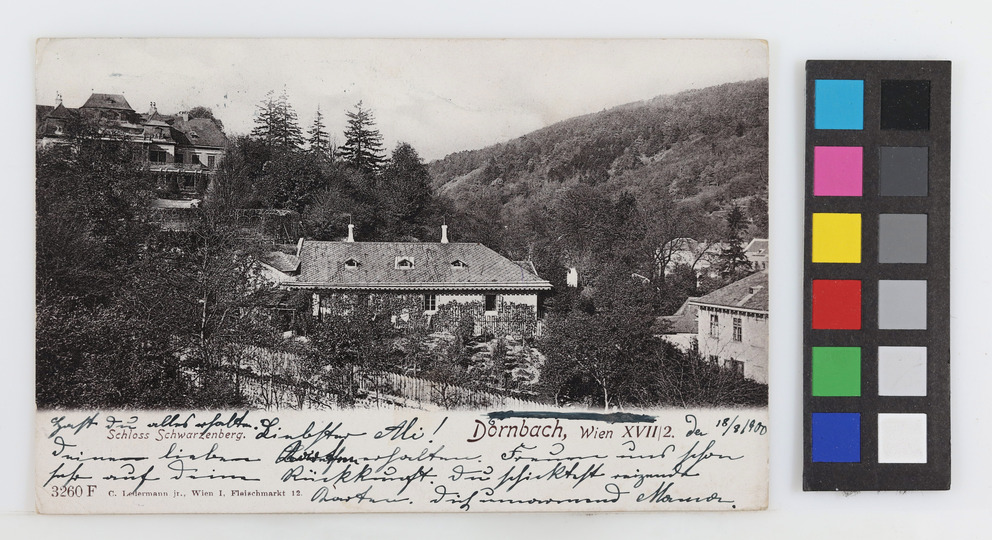 Hast du alles erhalten.
Schloss Schwarzenberg.
Liebster Ali!
Dornbach, Wien XVII/2. den 18/8/1900
Deinen lieben erhalten. Freuen uns schon
sehr auf deine Rückkunft. Du schicktest reizende
3260 F C. Ledermann jr., Wien I, Fleischmarkt 12.
Karten. Dich umarmend Mama.